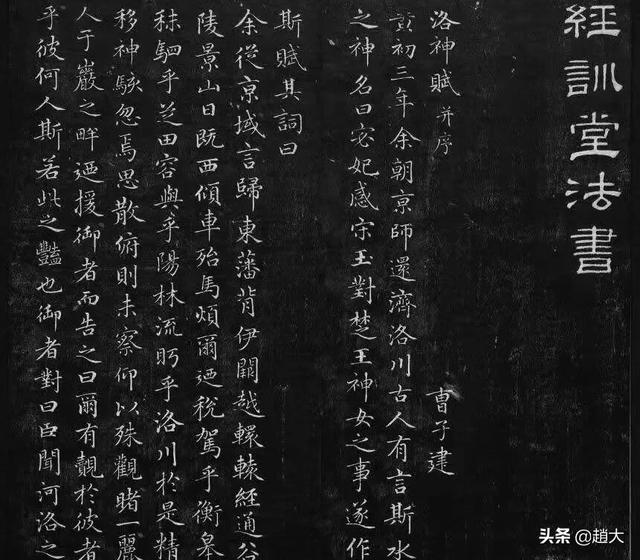 經訓堂法書
洛神賦 并序 曹子建
黃初三年余朝京師還濟洛川古人有言斯水
之神名曰宓妃感宋玉對楚王神女之事遂作
斯賦其詞曰
余從京域言歸東藩背伊闕越轘轅經通谷
陵景山日既西傾車殆馬煩爾迺稅駕乎衡皋
秣駟乎芝田容與乎陽林流眄乎洛川於是精
移神駭忽焉思散俯則未察仰以殊觀睹一麗
人于巖之畔迺援御者而告之曰爾有覿於彼者
乎彼何人斯若此之豔也御者對曰臣聞河洛之
头条 @趙大